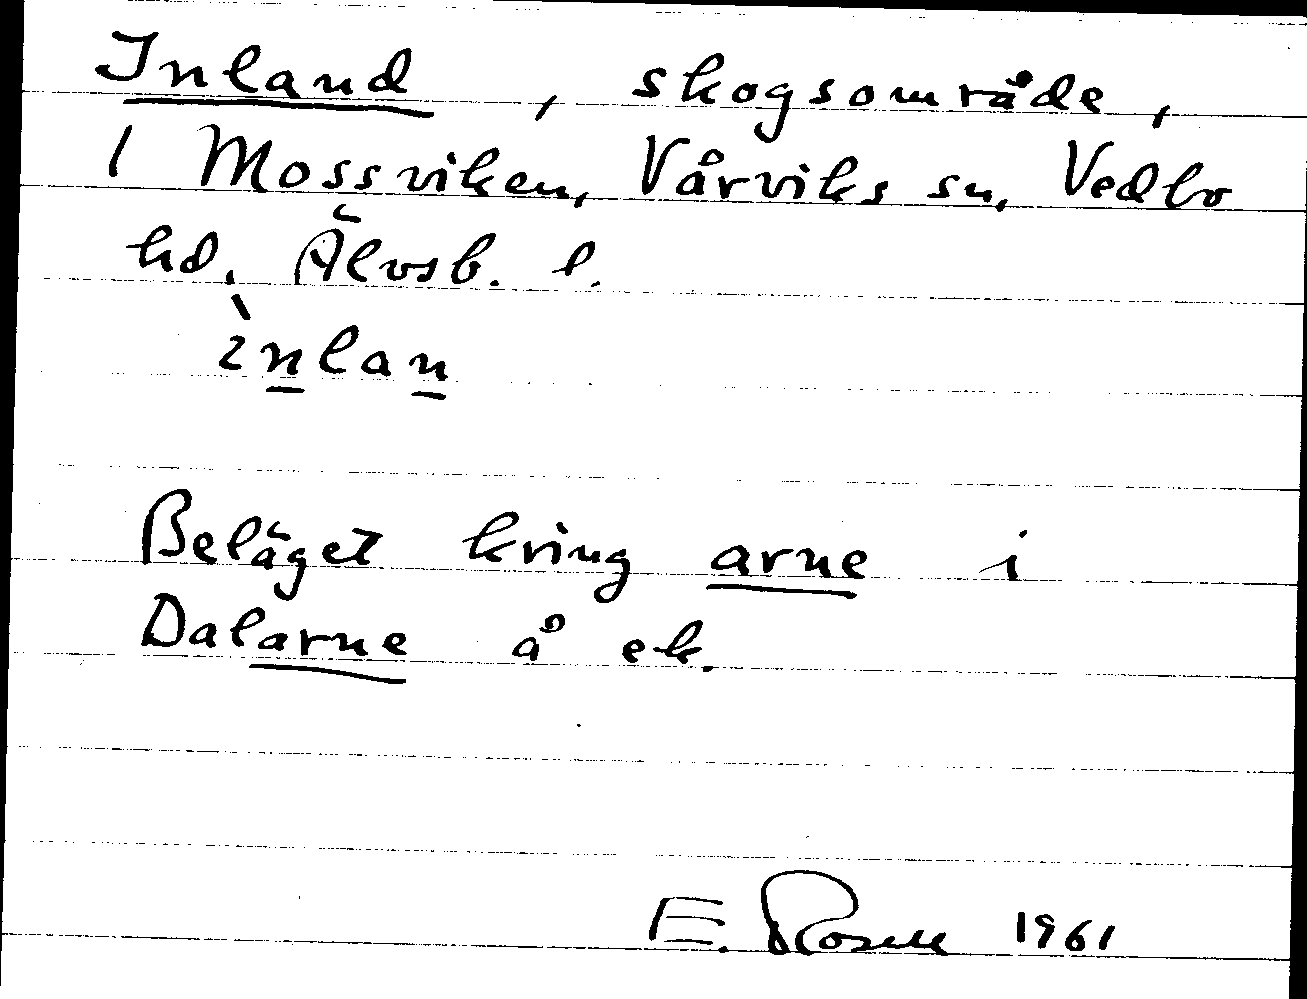 Inland, skogsområde,
1 Mossviken, Vårviks sn, Vedbo
hd. Älvsb. l.
ìnlan
Beläget kring arne i
Dalarne å ek.
E. Rosell 1961